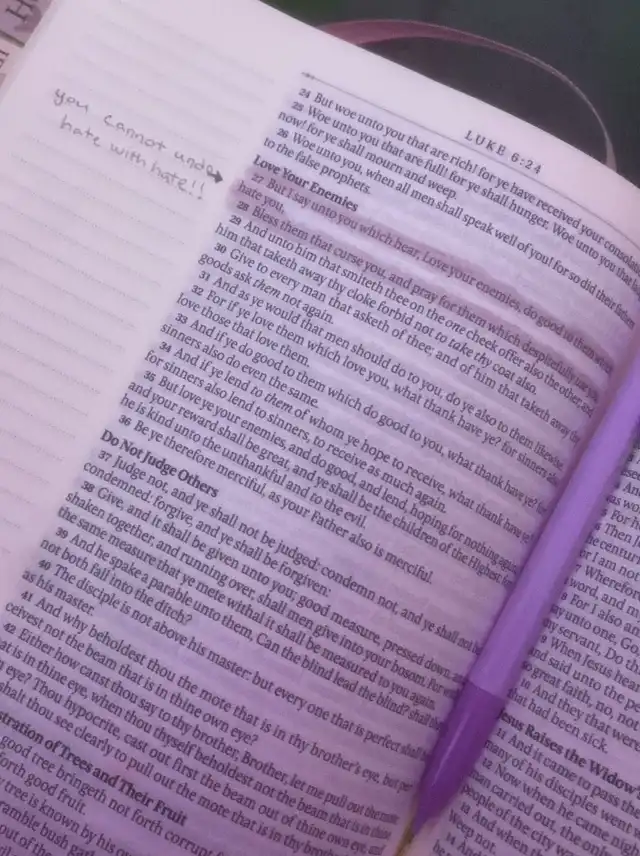 LUKE 6:24
you cannot undo
hate with hate!!
24 But woe unto you that are rich! for ye have received your
25 Woe unto you that are full! for ye shall hunger. Woe unto you that
now! for ye shall mourn and weep.
26 Woe unto you, when all men shall speak well of you! for so did their
to the false prophets.
Love Your Enemies
27 But I say unto you which hear, Love your enemies, do good to them
hate you,
28 Bless them that curse you, and pray for them which despitefully use
29 And unto him that smiteth thee on the one cheek offer also the other; and
him that taketh away thy cloke forbid not to take thy coat also.
30 Give to every man that asketh of thee; and of him that taketh away thy
goods ask them not again.
31 And as ye would that men should do to you, do ye also to them likewise.
32 For if ye love them which love you, what thank have ye? for sinners also
love those that love them.
33 And if ye do good to them which do good to you, what thank have ye? for
sinners also do even the same.
34 And if ye lend to them of whom ye hope to receive, what thank have ye?
for sinners also lend to sinners, to receive as much again.
35 But love ye your enemies, and do good, and lend, hoping for nothing again;
and your reward shall be great, and ye shall be the children of the Highest: for
he is kind unto the unthankful and to the evil.
36 Be ye therefore merciful, as your Father also is merciful.
Do Not Judge Others
37 Judge not, and ye shall not be judged: condemn not, and ye shall not be
condemned: forgive, and ye shall be forgiven:
38 Give, and it shall be given unto you; good measure, pressed down, and
shaken together, and running over, shall men give into your bosom. For with
the same measure that ye mete withal it shall be measured to you again.
39 And he spake a parable unto them, Can the blind lead the blind? shall they
not both fall into the ditch?
40 The disciple is not above his master: but every one that is perfect shall be
as his master.
41 And why beholdest thou the mote that is in thy brother's eye, but per
ceivest not the beam that is in thine own eye?
42 Either how canst thou say to thy brother, Brother, let me pull out the mote
that is in thine eye, when thou thyself beholdest not the beam that is in thine
eye? Thou hypocrite, cast out first the beam out of thine own eye, and
shalt thou see clearly to pull out the mote that is in thy brother's
stration of Trees and Their Fruit
good tree bringeth not forth corrupt
forth good fruit.
tree is known by his
ramble bush
out of the
was
For I
Then
centurion
for I am not
Wherefore
word, and my
For I also
say unto one, Go
my servant, Do
When Jesus heard
and said unto the
so great faith, no, not
And they that were
that had been sick.
Jesus Raises the Widow's
And it came to pass the
many of his disciples went
Now when he came nigh
man carried out, the only
people of the city
And when the
Weep not.
14 And
he